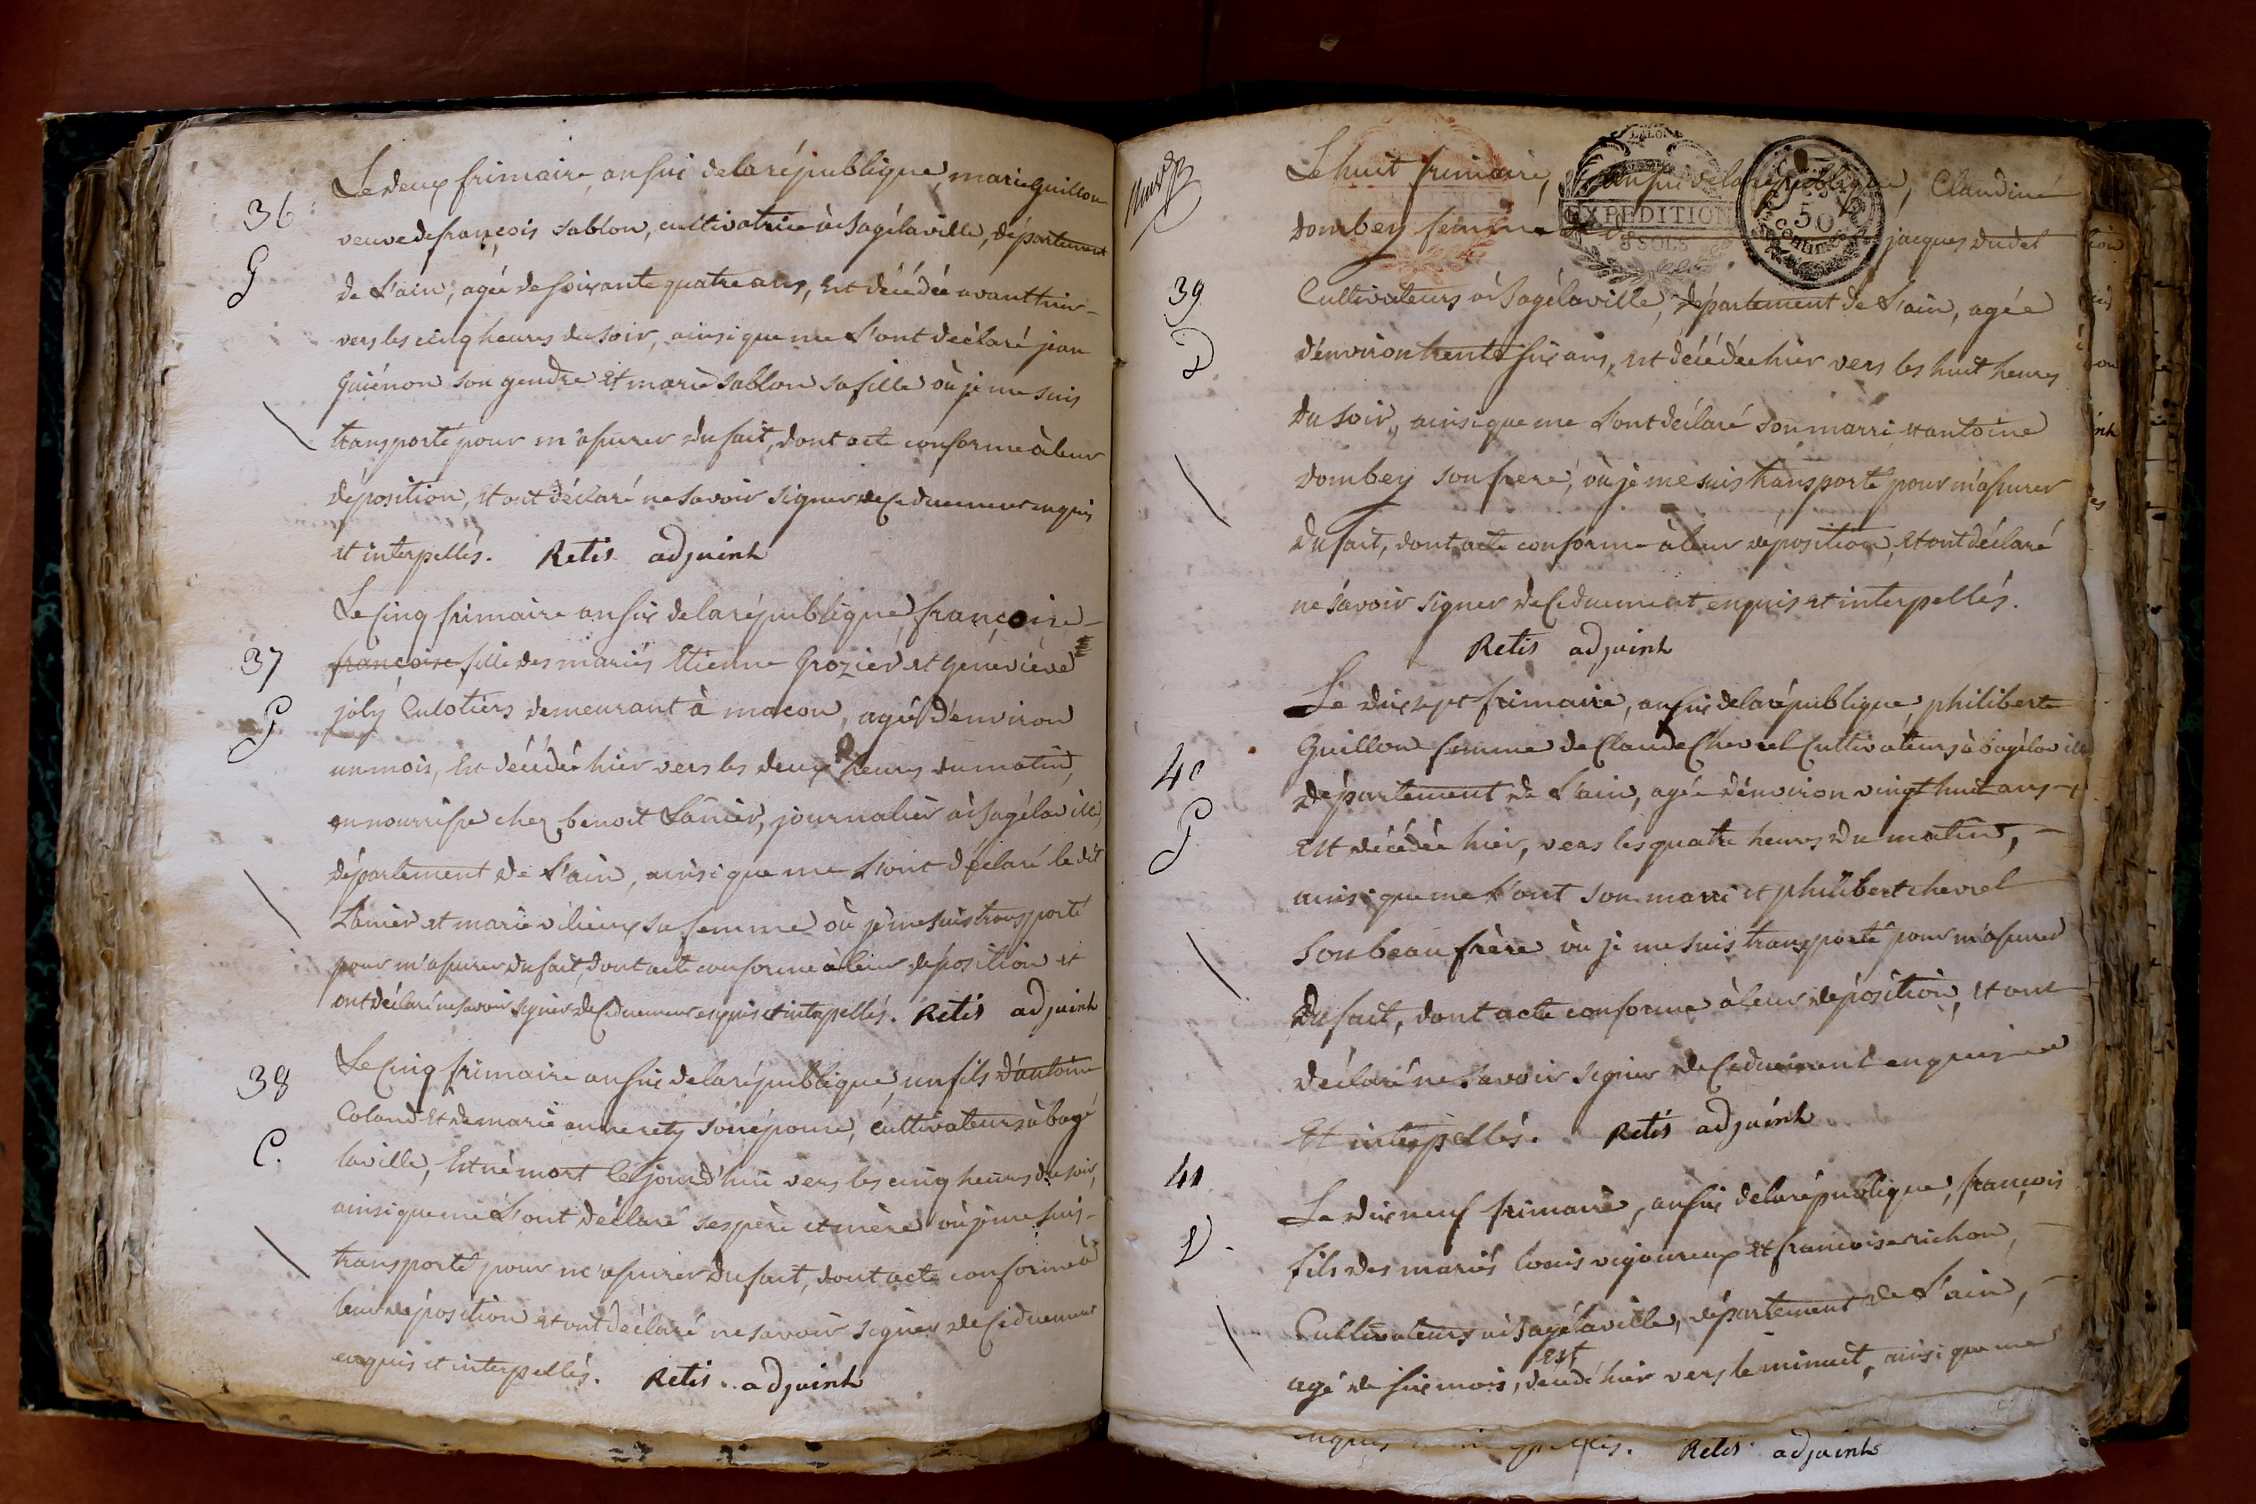 36
G
Le deux frimaire, an six de la république, marie guillon
veuve de françois sablon, cultivatrice à Bagélaville, département
de L'ain, agée de soixante quatre ans, Est décédée avant hier
vers les cinq heures du soir, ainsi que me L'ont déclaré jean
Guiénon son gendre et marie sablon sa fille où je me suis
transporté pour m'assurer du fait, dont acte conforme à leur
déposition, et ont déclaré ne savoir signer de Ce duement enquis
et interpellés. Retis adjoint
37
G
Le Cinq frimaire an six de la république, françoise
françoise fille des mariés Etienne Grozier et généviéve
joly Culotiers demeurant à macon, agée D'environ
un mois, Est décédée hier vers les deux heures du matin,
en nourrisse chez benoit Lanier, journalier à Bagélaville,
département de L'ain, ainsi que me L'ont déclaré le dit
Lanier et marie sa femme où je me suis transporté
pour m'assurer du fait, dont acte conforme à leur déposition et
ont déclaré ne savoir signer de Ce duement enquis et interpellés. Retis adjoint
38
C.
Le Cinq frimaire an six de la république, un fils d'antoine
Coland et de marie anne rety son épouse, Cultivateurs à bagé
laville, Est né mort Cejourd'hui vers les cinq heures du soir,
ainsi que me L'ont déclaré ses père et mère où je me suis
transporté pour m'assurer du fait, dont acte conforme à
leur déposition et ont déclaré ne savoir signer de Ce duement
enquis et interpellés. Retis adjoint
Le huit frimaire, an six de la république, Claudine
EXPEDITION
SOLS
50
CENTIMES
Dombey femme jacques dudet
39
D
Cultivateurs à Bagélaville, département de L'ain, agée
d'environ trente six ans, est décédée hier vers les huit heures
du soir, ainsi que me L'ont déclaré son marri et antoine
Dombey son frere, où je me suis transporté pour m'assurer
du fait, dont acte conforme à leur déposition, et ont déclaré
ne savoir signer de Ce duement enquis et interpellés.
Retis adjoint
40
G
Le dix sept frimaire, an six de la république, philiberte
Guillon femme de Claude Chevrel Cultivateurs à bagélaville
département de L'ain, agée d'environ vingt huit ans,
Est décédée hier, vers les quatre heures du matin,
ainsi que me L'ont son marri et philibert chevrel
son beau frère où je me suis transporté pour m'assurer
du fait, dont acte conforme à leur déposition, et ont
déclaré ne savoir signer de Ce duement enquis
Et interpellés. Retis adjoint
41
V.
Le dix neuf frimaire, an six de la république, françois
fils des mariés louis vigoureux et françoise richon,
Cultivateurs à Bagélaville, département de L'ain,
est
agé de six mois, décédé hier vers le minuit, ainsi que me
enquis Retis adjoint